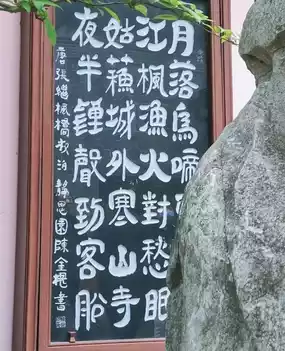 月落烏啼
江楓漁火對愁眠
姑蘓城外寒山寺
夜半鍾聲到客船
唐張繼楓橋夜泊 靜思園陳金書